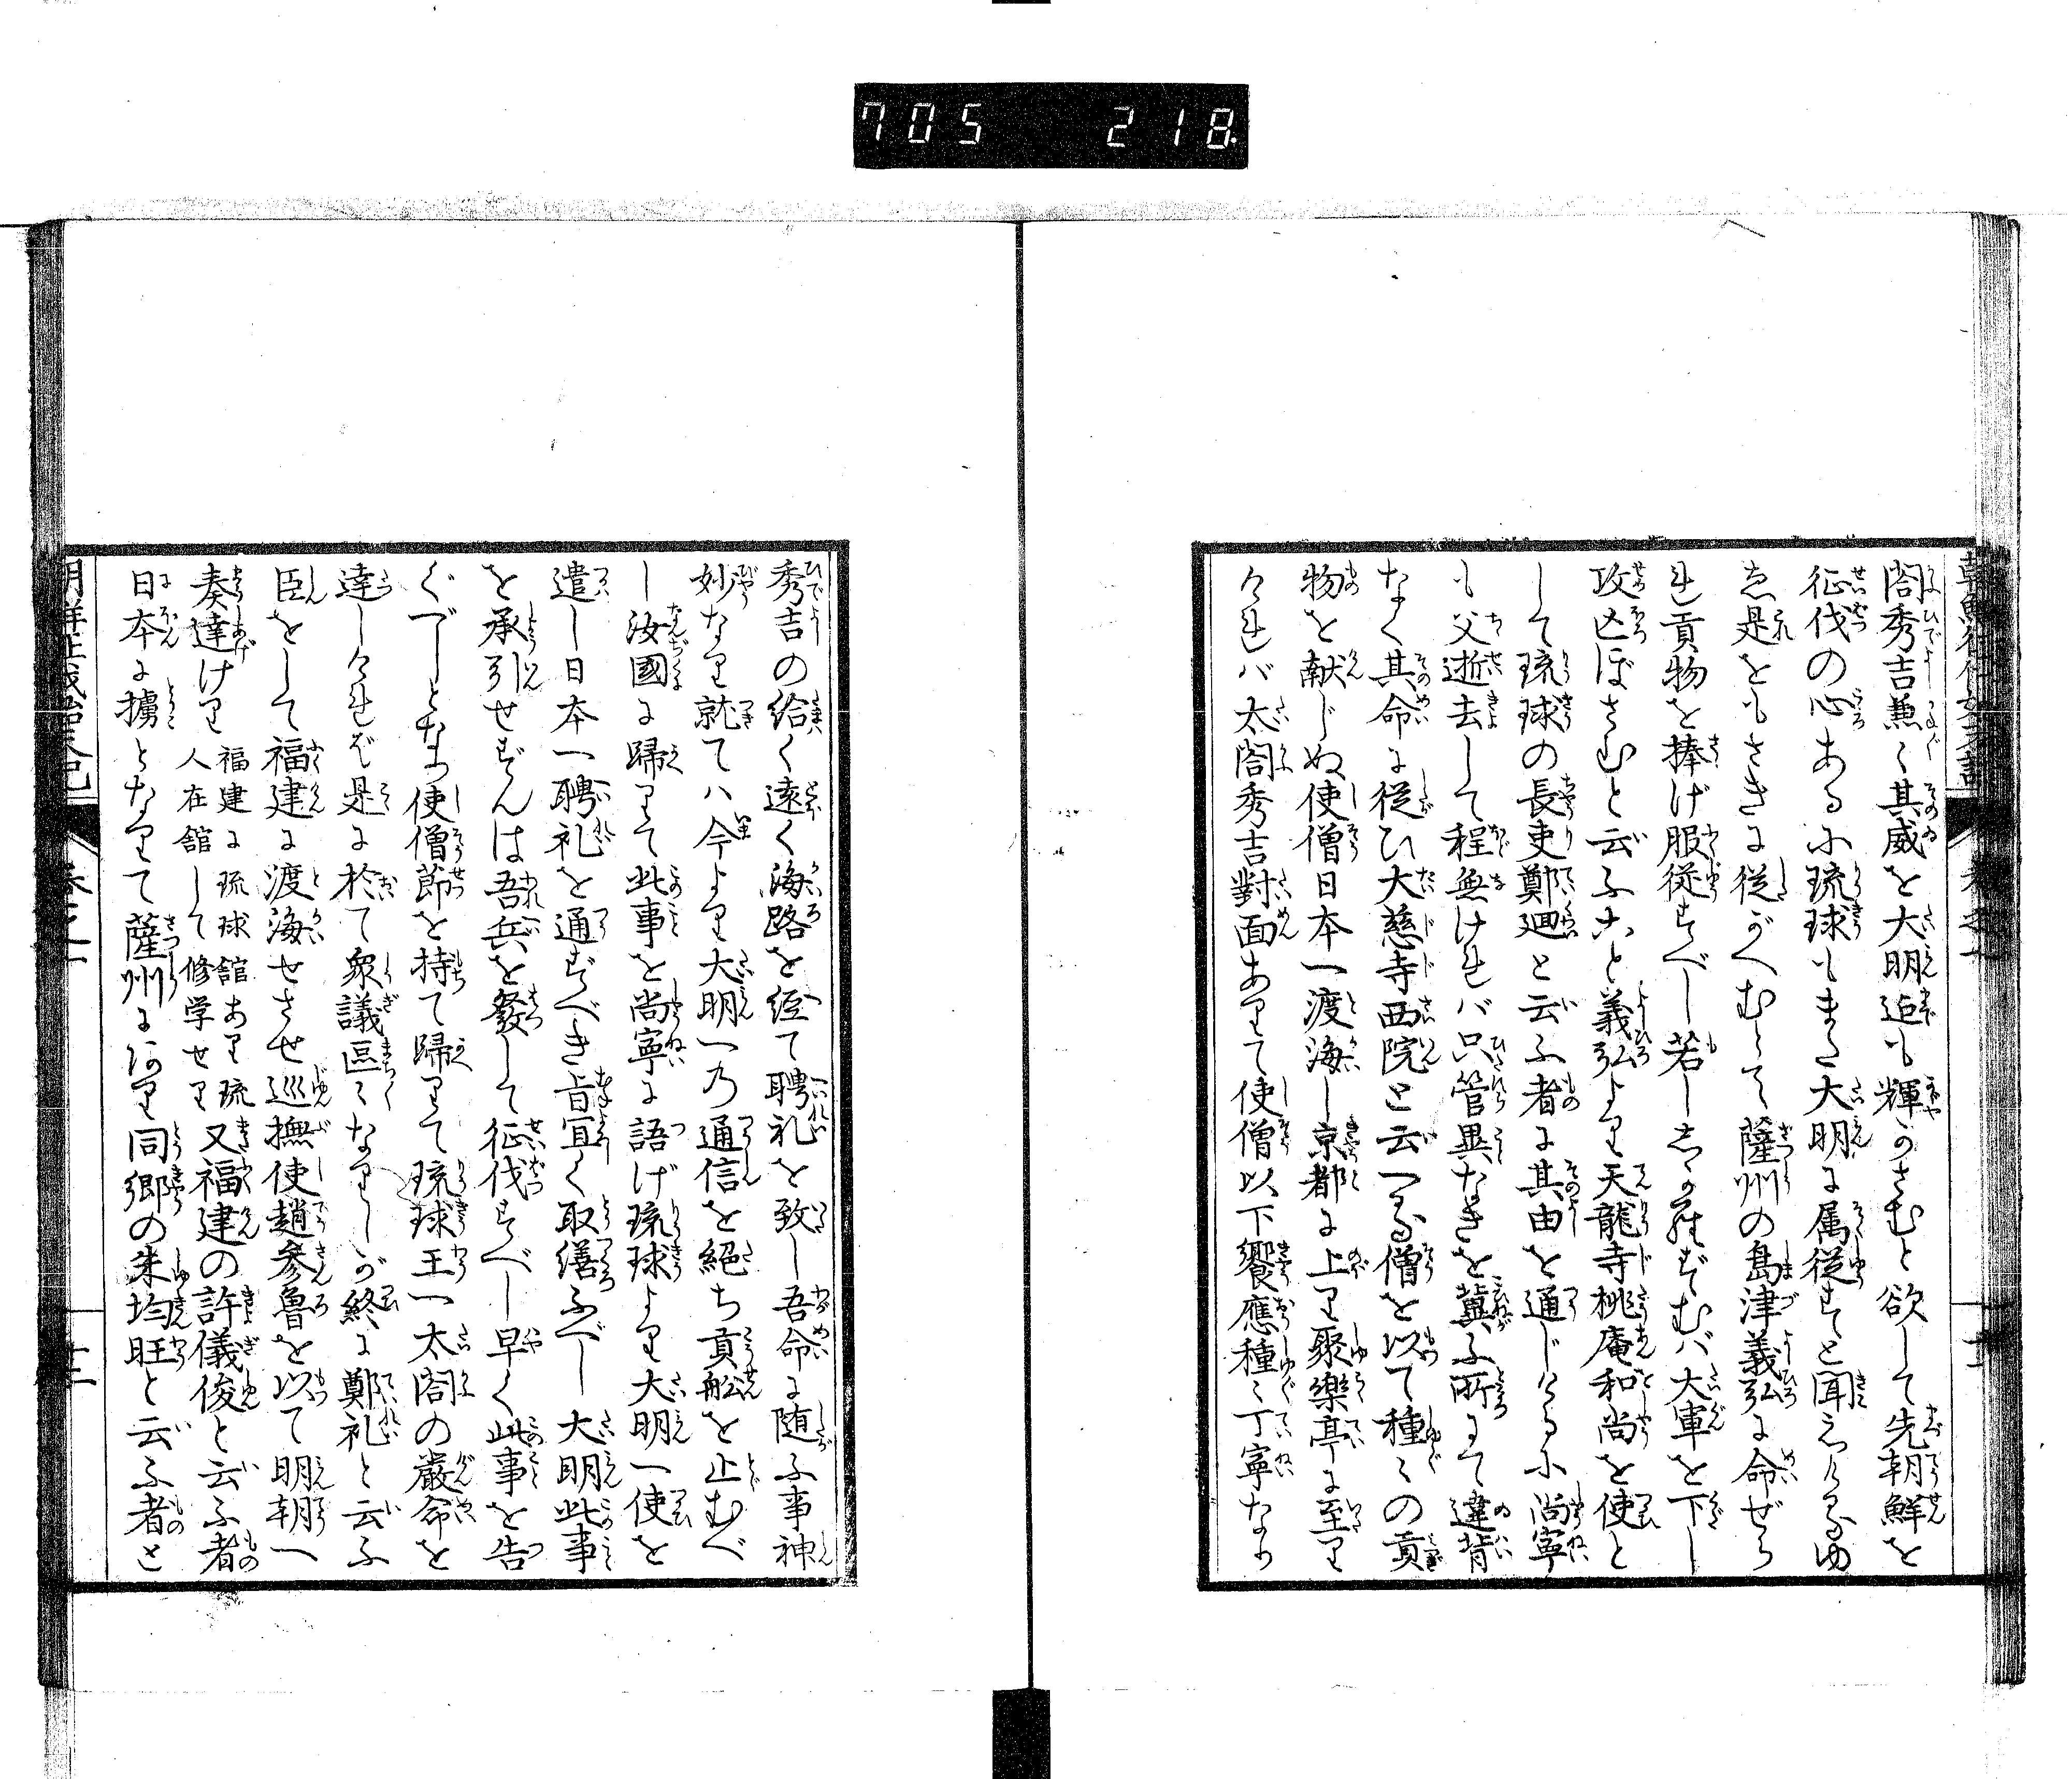 705 218
閤秀吉兼〻其威を大明迄も輝かさむと欲して先朝鮮を
征伐の心ある小琉球もまた大明に属従すと聞えけるゆ
ゑ是をもさきに従がへむとて薩州の島津義弘に命ぜら
れ貢物を捧げ服従すべし若しからずむバ大軍を下し
攻亡ぼさむと云ふ〓と義弘より天龍寺桃庵和尚を使と
して琉球の長吏鄭廻と云ふ者に其由を通じける小尚寧
も父逝去して程無けれバ只管異なきを冀ふ所にて違背
なく其命に従ひ大慈寺西院と云へる僧を以て種〻の貢
物を献じぬ使僧日本へ渡海し京都に上り聚樂亭に至り
けれバ太閤秀吉對面ありて使僧以下饗應種〻丁寧なり
秀吉の給く遠く海路を経て聘礼を致し吾命に随ふ事神
妙なり就てハ今より大明への通信を絶ち貢舩を止むべ
し汝國に歸りて此事を尚寧に語げ琉球より大明へ使を
遣し日本へ聘礼を通ずべき旨宜く取繕ふべし大明此事
を承引せずんは吾兵を發して征伐すべし早く此事を告
ぐべしとなつ使僧節を持て歸りて琉球王へ太閤の嚴命を
達しければ是に於て衆議區〻なりしが終に鄭礼と云ふ
臣をして福建に渡海せさせ巡撫使趙参魯を以て明朝へ
奏達けり福建に琉球舘あり琉人在舘して修学せり又福建の許儀俊と云ふ者
日本に擄となりて薩州にあり同郷の朱均旺と云ふ者と